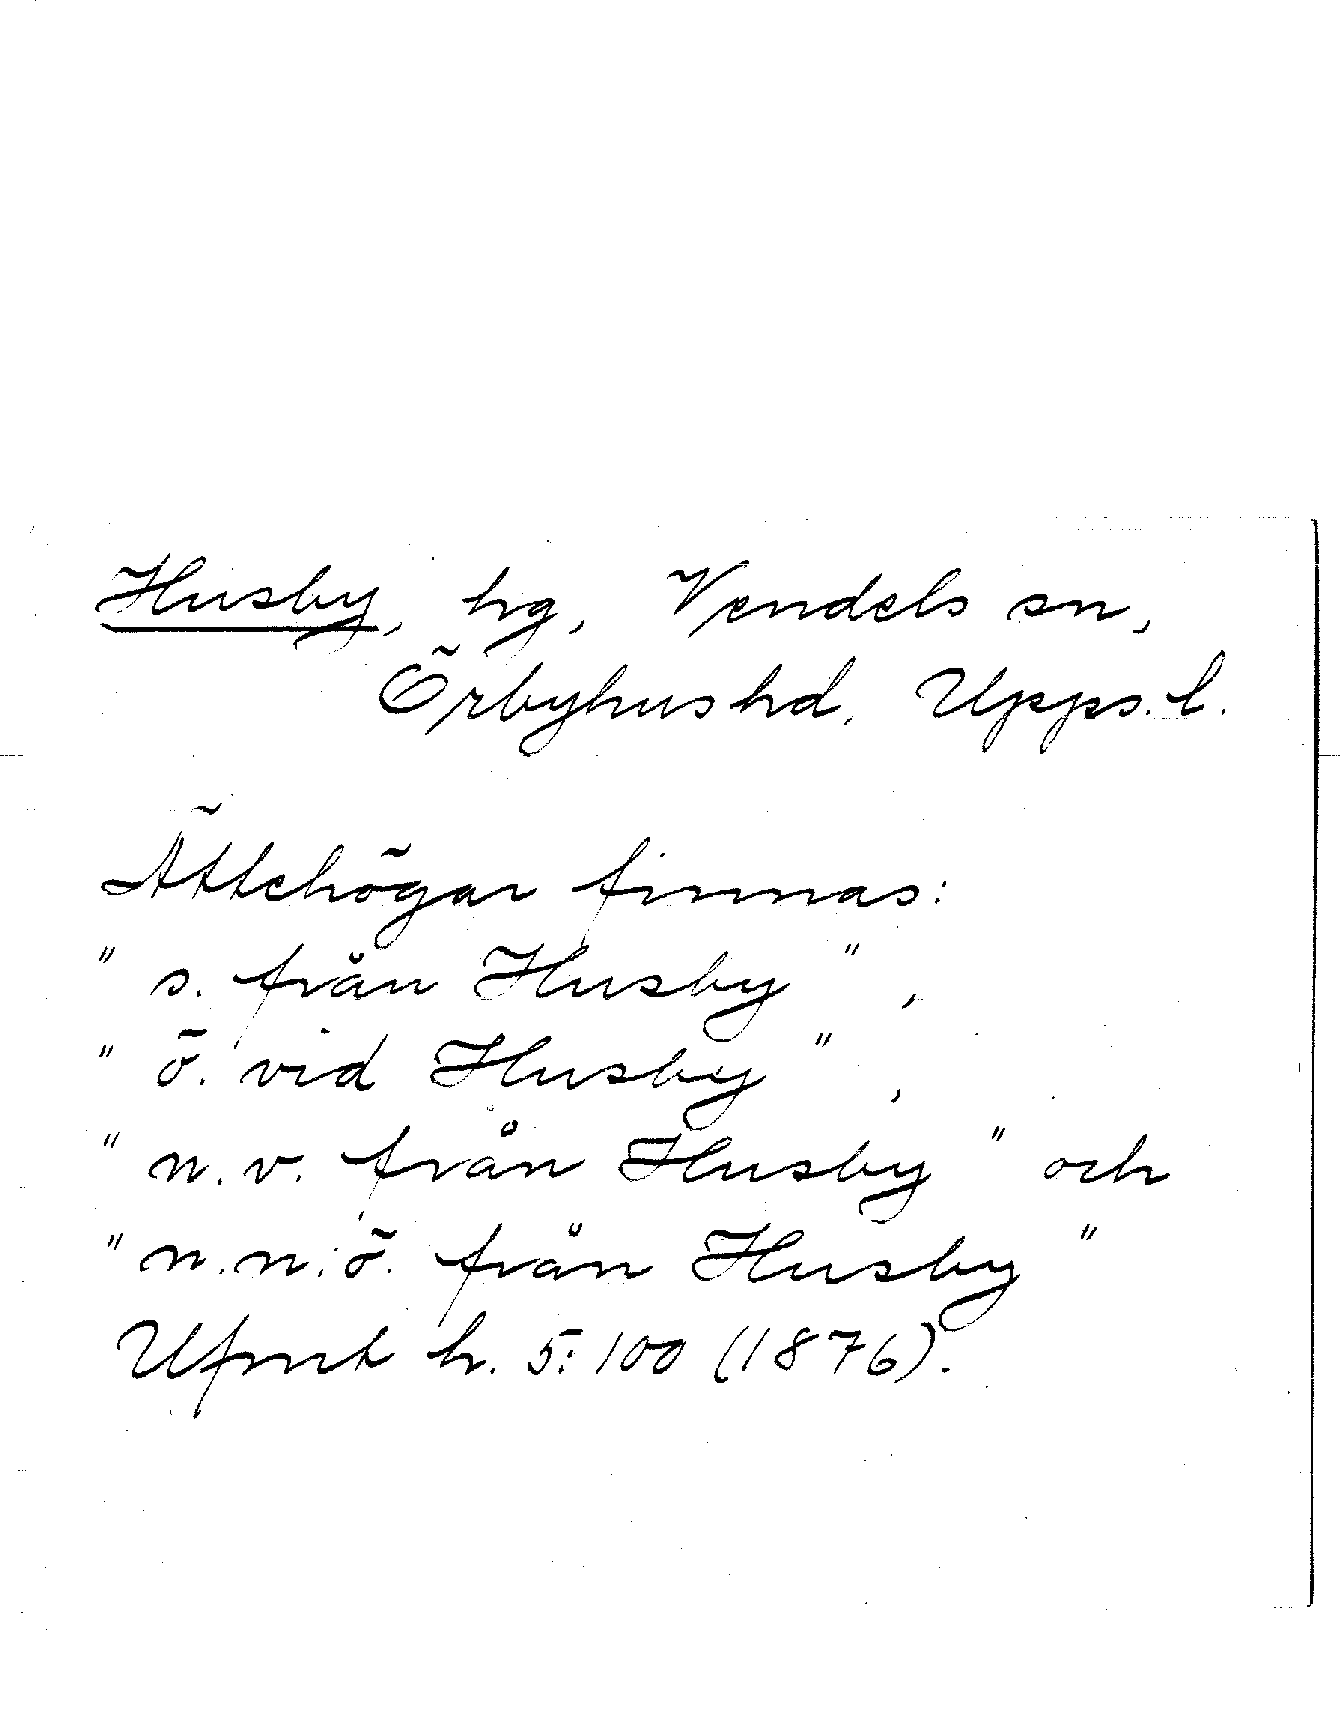 Husby, hg, Vendels sn,
Örbyhus hd, Upps. l.
Ättehögar finnas:
" s. från Husby ",
" ö. vid Husby ",
" n.v. från Husby " och
" n.n.ö. från Husby "
Ufmt h. 5:100 (1876).